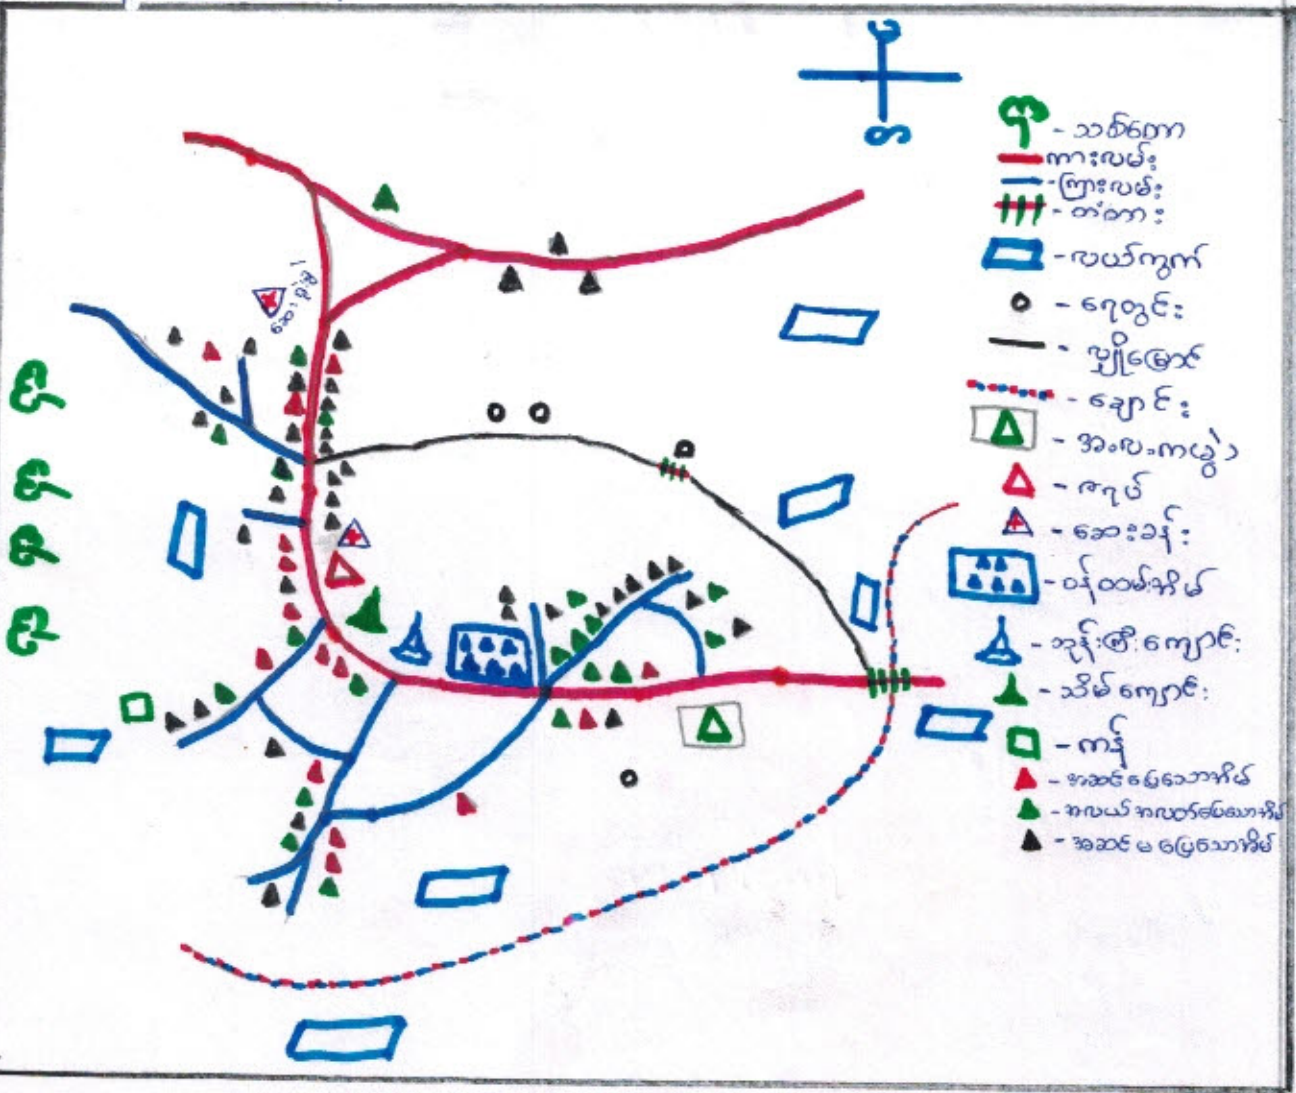 မ
တ
- သစ်တော
ကားလမ်း
- ကြားလမ်း
- တံတား
- လယ်ကွက်
- ရေတွင်း
- မြောင်း
- ချောင်း
- အ.လ.က(ခွဲ)
- ဇရပ်
- ဆေးခန်း
- ဝန်ထမ်းအိမ်
- ဘုန်းကြီးကျောင်း
- သိမ်ကျောင်း
- ကန်
- အဆင်ပြေသောအိမ်
- အလယ်အလတ်ပြေသောအိမ်
- အဆင်မပြေသောအိမ်